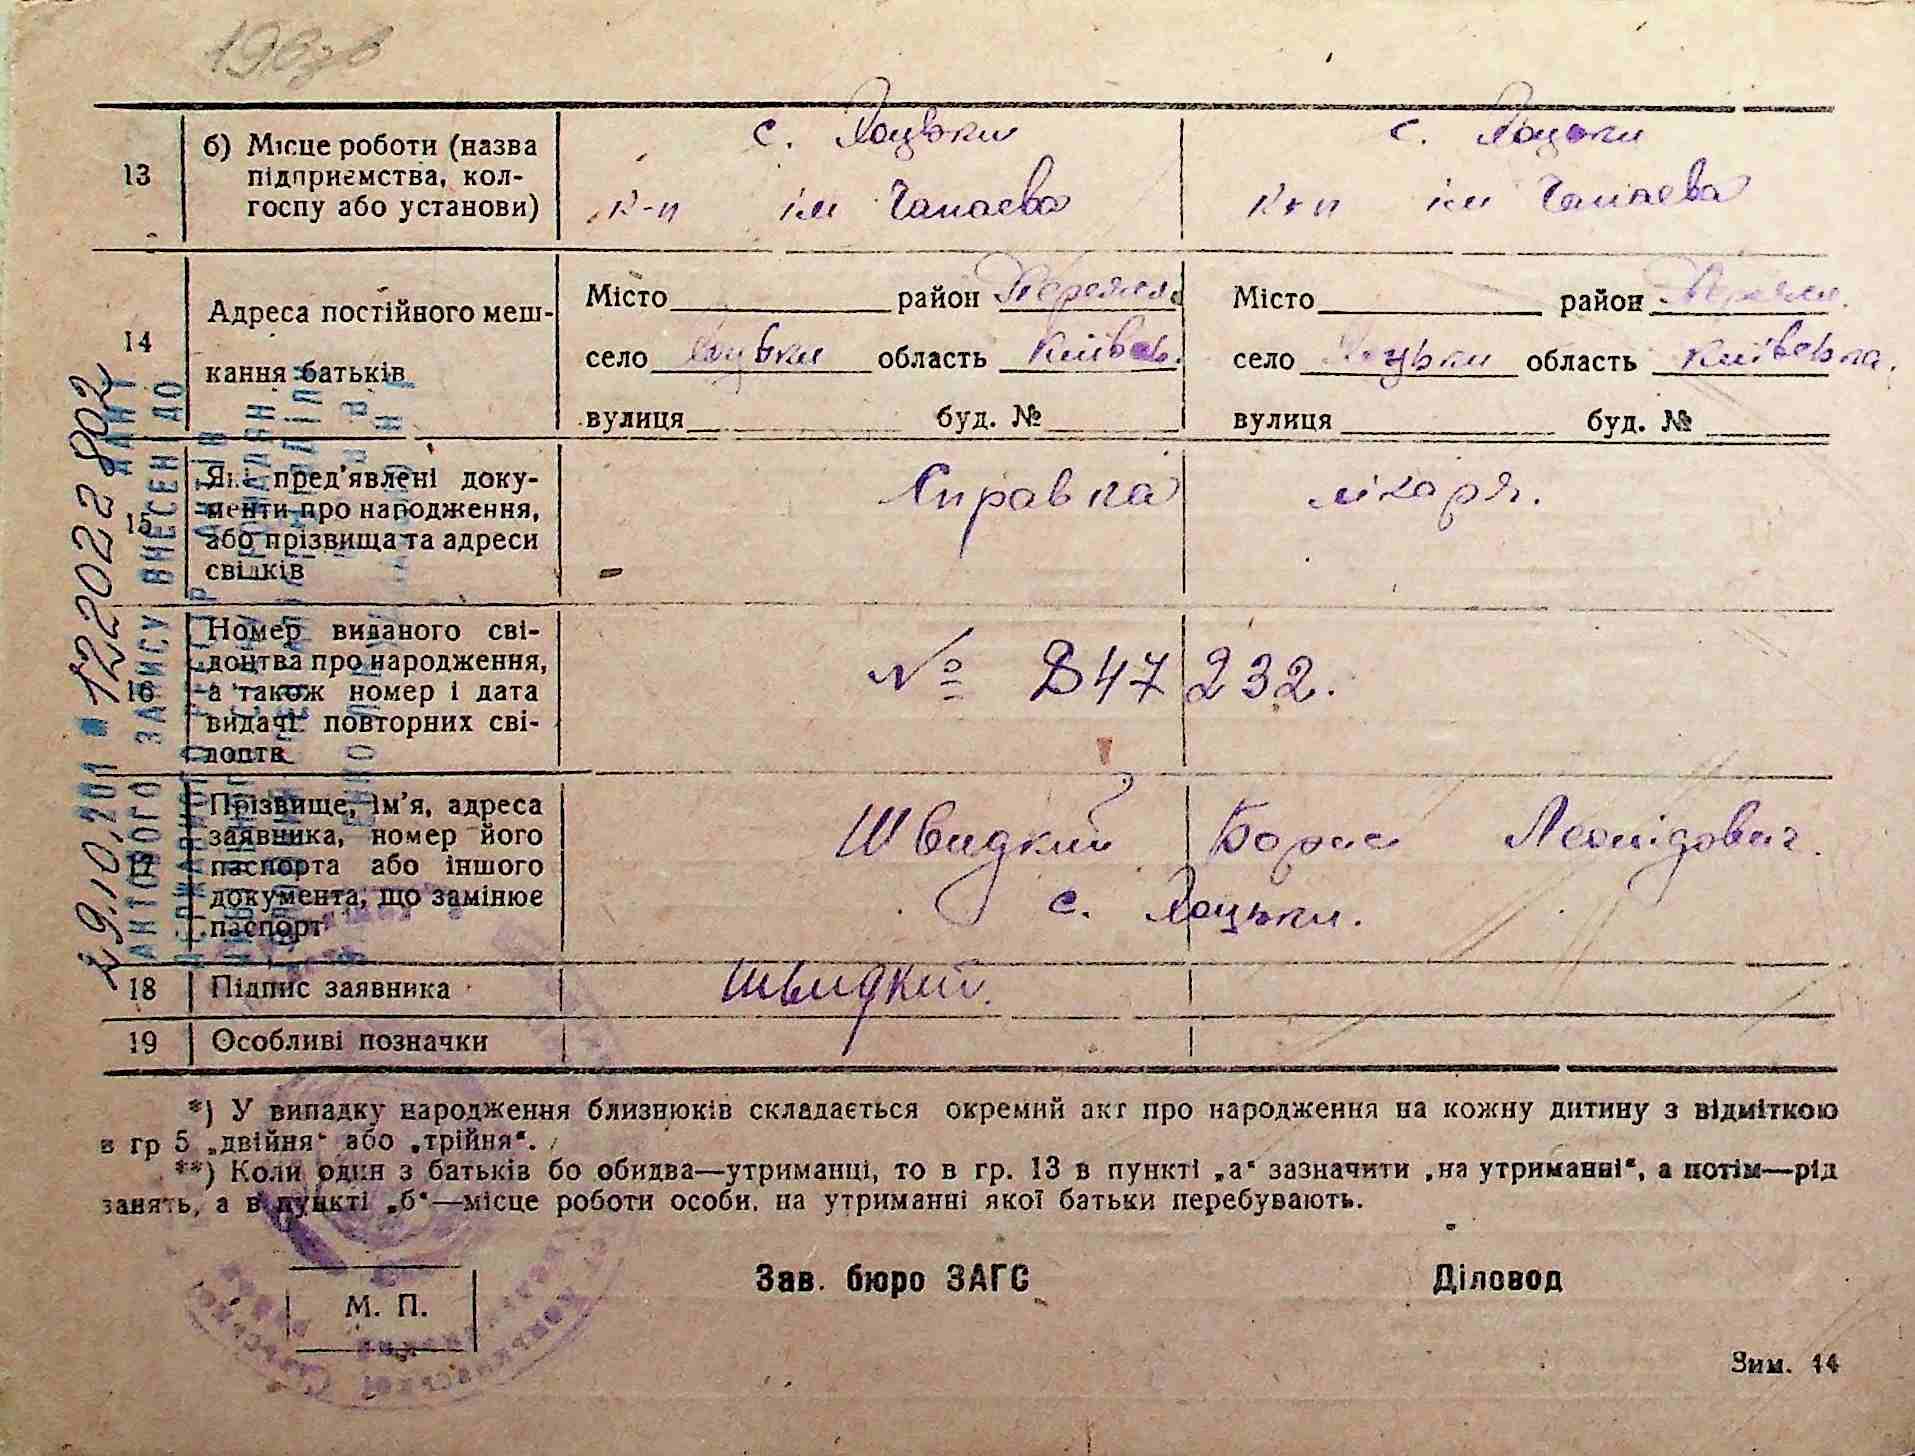 13
б) Місце роботи (назва
підприємства, кол-
госпу або установи)
с. Хоцьки
к-п ім Чапаєва
с. Хоцьки
к-п ім Чапаєва
14
Адреса постійного меш-
кання батьків
Місто район Переясл.
село Хоцьки область Київсь.
вулиця буд. №
Місто район Переясл.
село Хоцьки область Київська.
вулиця буд. №
15
Які пред'явлені доку-
менти про народження,
або прізвища та адреси
свідків
Справка лікаря.
16
Номер виданого сві-
доцтва про народження,
а також номер і дата
видачі повторних сві-
доцтв
№ 847232.
17
Прізвище, ім'я, адреса
заявника, номер його
паспорта або іншого
документа, що замінює
паспорт
Швидкий Борис Леонідович.
с. Хоцьки.
18
Підпис заявника
Швидкий.
19
Особливі позначки
*) У випадку народження близнюків складається окремий акт про народження на кожну дитину з відміткою
в гр 5 „двійня" або „трійня".
**) Коли один з батьків бо обидва—утриманці, то в гр. 13 в пункті „а" зазначити „на утриманні", а потім—рід
занять, а в пункті „б"—місце роботи особи, на утриманні якої батьки перебувають.
Зав. бюро ЗАГС
Діловод
М. П.
Зим. 14
29.10.201 1220228802
АКТОВОГО ЗАПИСУ ВНЕСЕН ДО